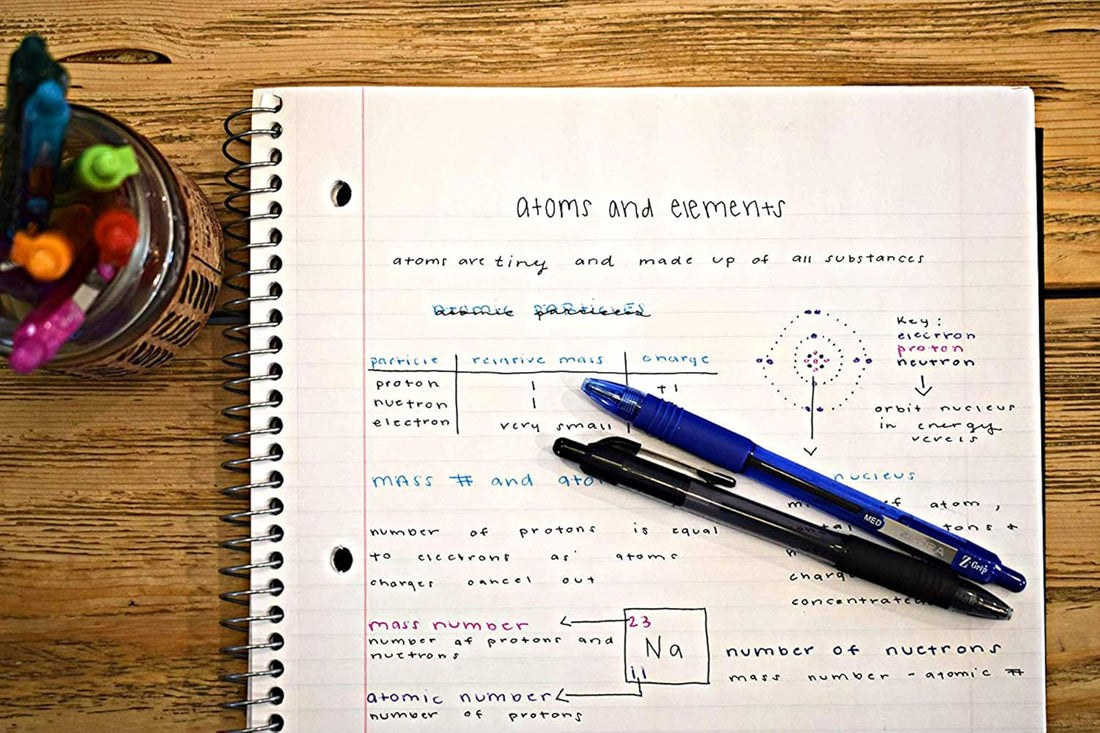 atoms and elements
atoms are tiny and made up of all substances
atomic particles
particle relative mass charge
proton 1 +1
nuetron 1
electron very small
Key:
electron
proton
neutron
orbit nucleus
in energy
mass # and
nucleus
atom,
number of protons is equal
to electrons as atoms
charges cancel out
mass number
number of protons and
nuetrons
23
Na
11
atomic number
number of protons
number of nuetrons
mass number - atomic #
MED
ZEBRA
Z-Grip